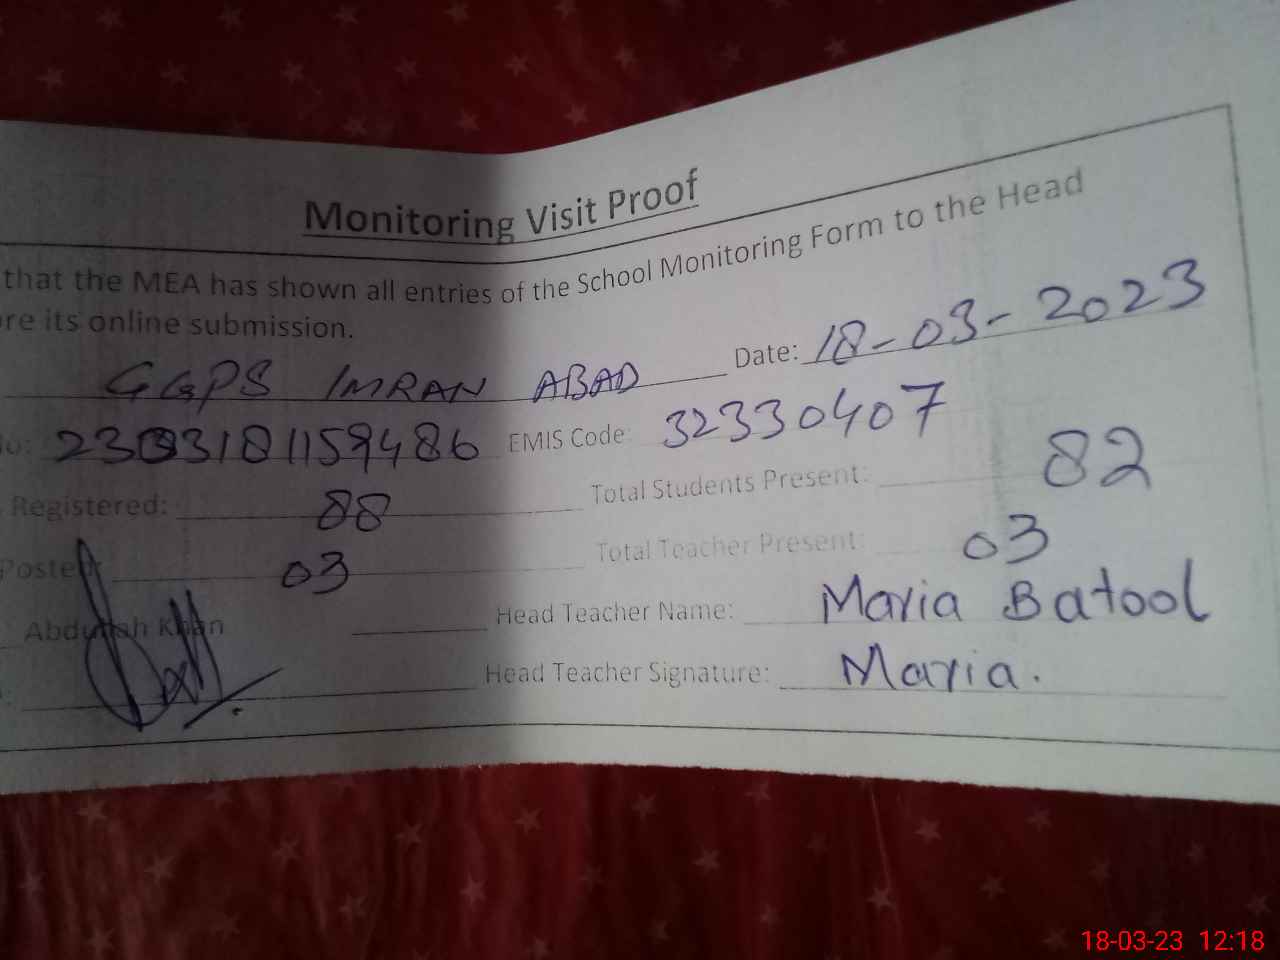 Monitoring Visit Proof
that the MEA has shown all entries of the School Monitoring Form to the Head
re its online submission.
GGPS IMRAN ABAD Date: 18-03-2023
o: 2303181159486 EMIS Code: 32330407
Registered: 88 Total Students Present: 82
Posted: 03 Total Teacher Present: 03
Abdullah Khan Head Teacher Name: Maria Batool
Head Teacher Signature: Maria.
18-03-23 12:18